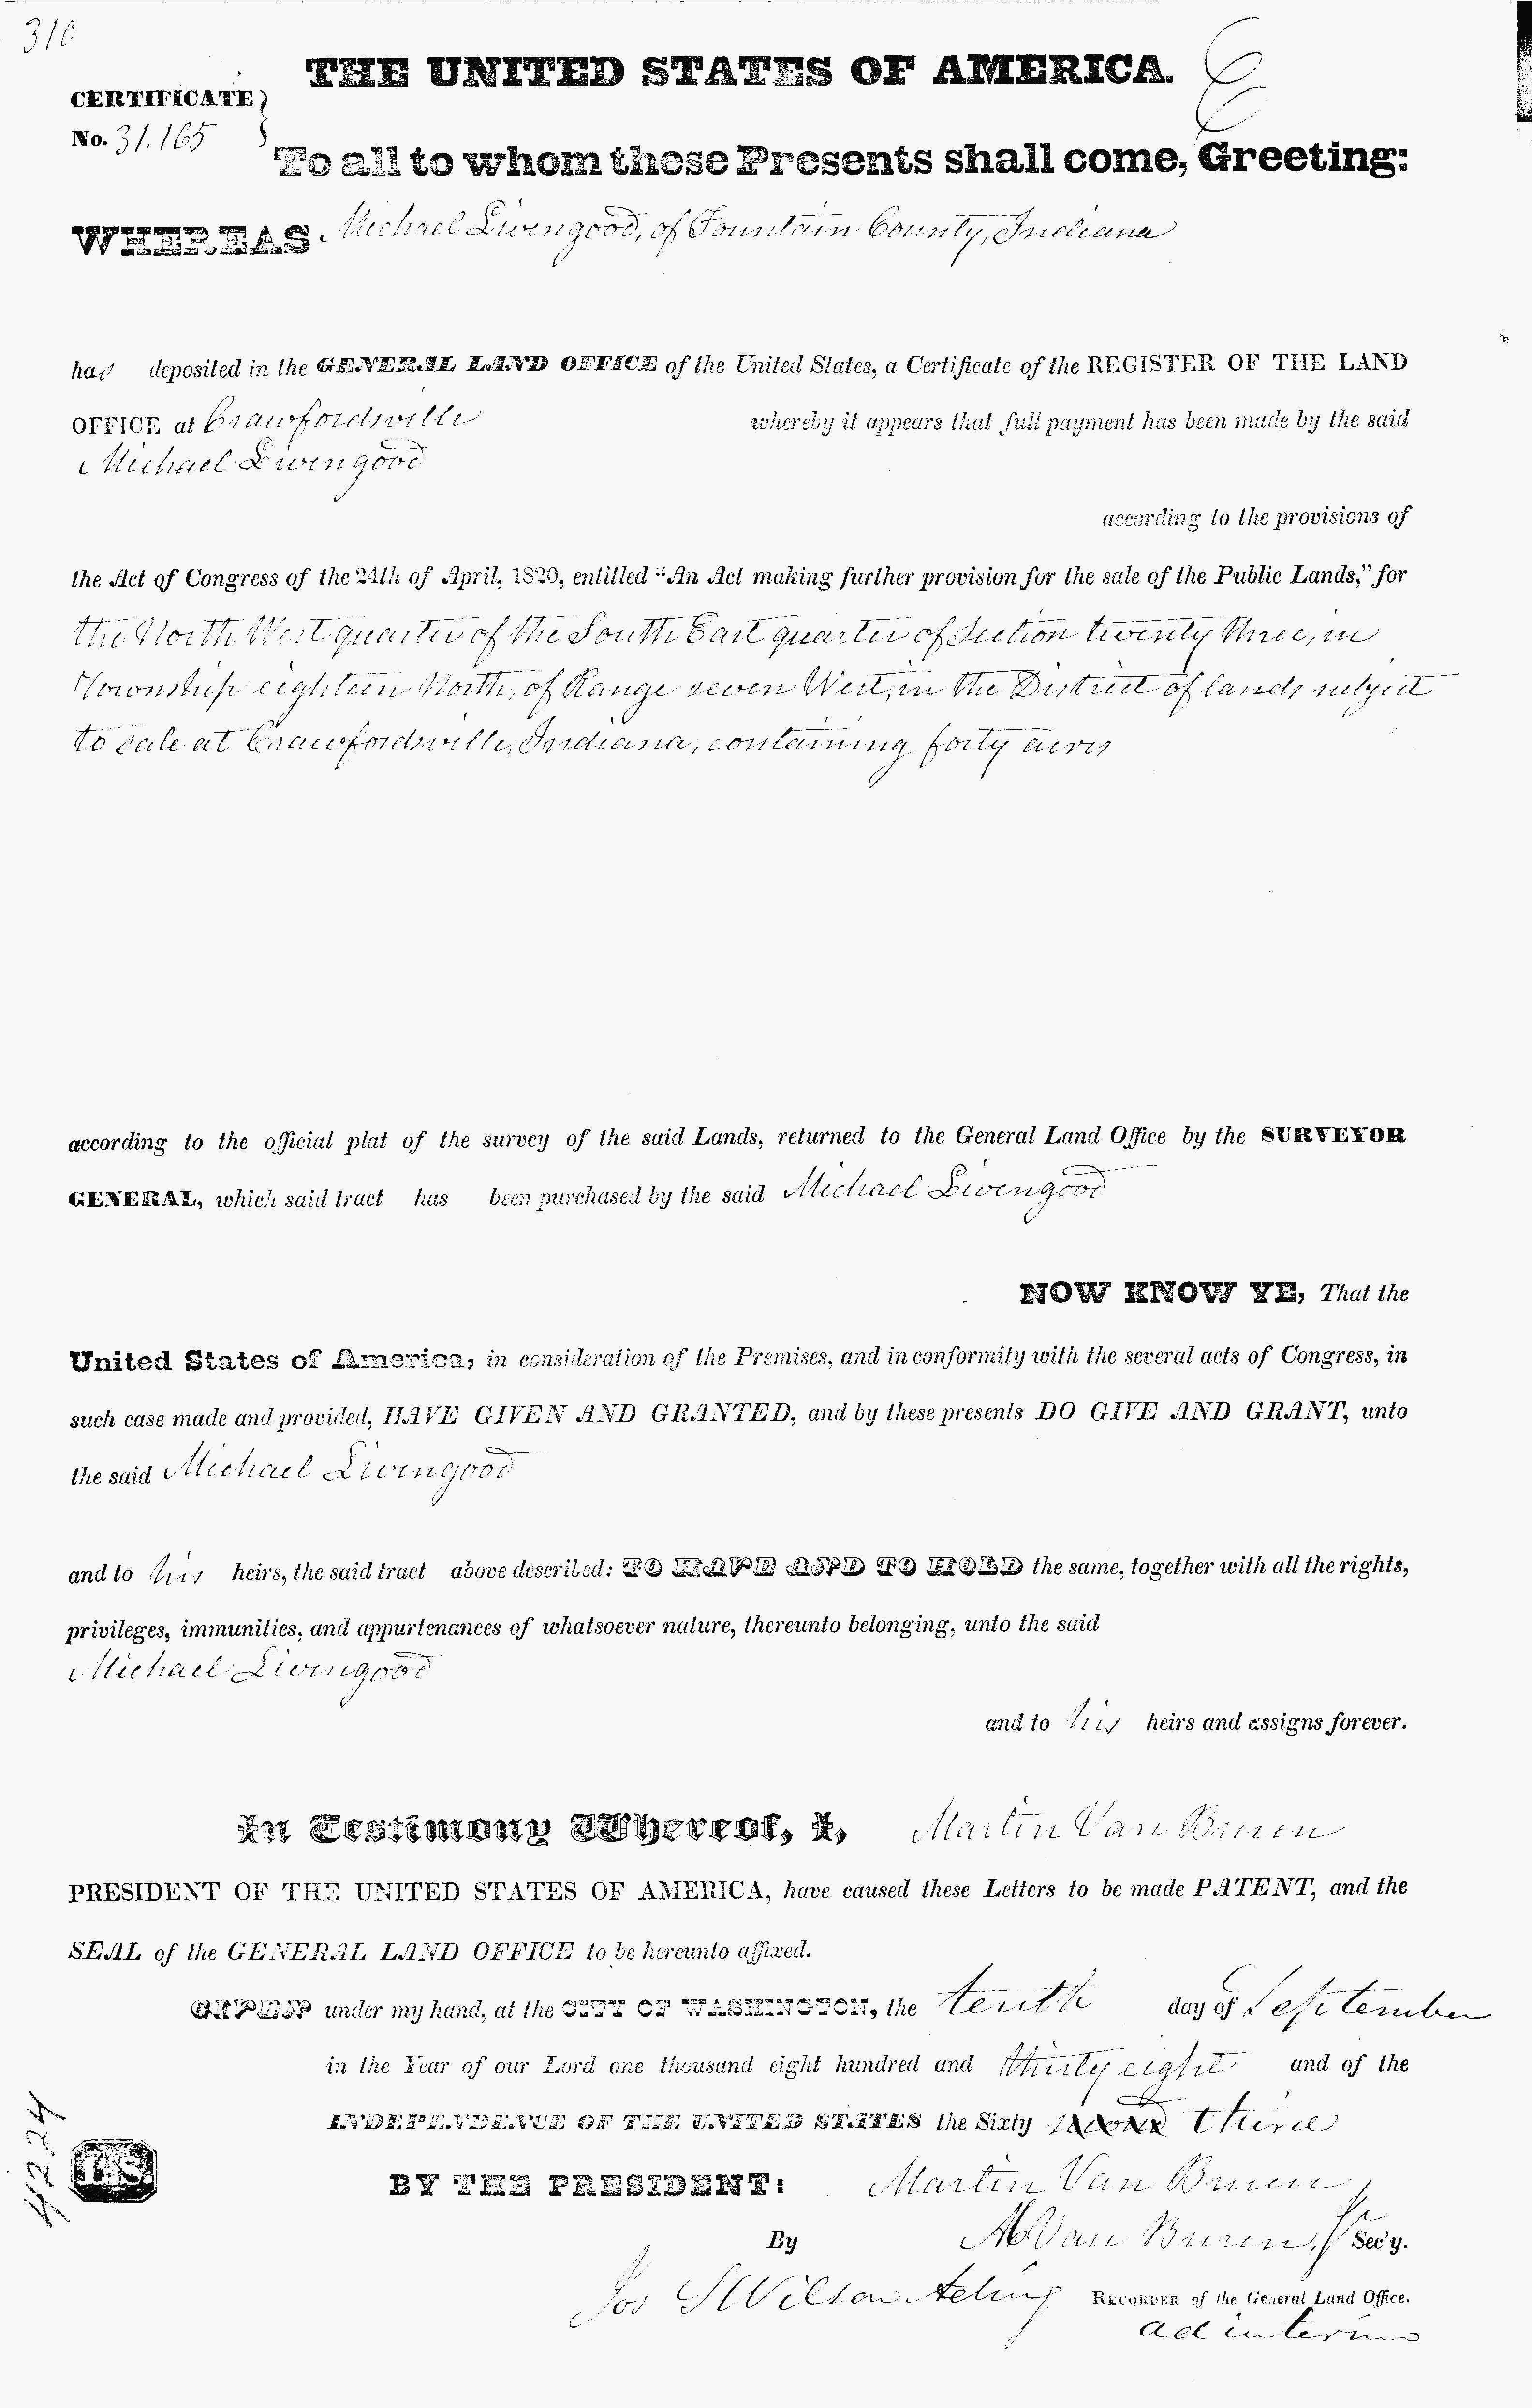 310
THE UNITED STATES OF AMERICA.
CERTIFICATE
No. 31.165
To all to whom these Presents shall come, Greeting:
WHEREAS Michael Livengood, of Fountain County, Indiana
has deposited in the GENERAL LAND OFFICE of the United States, a Certificate of the REGISTER OF THE LAND
OFFICE at Crawfordsville whereby it appears that full payment has been made by the said
Michael Livengood
according to the provisions of
the Act of Congress of the 24th of April, 1820, entitled “An Act making further provision for the sale of the Public Lands,” for
the North West quarter of the South East quarter of Section twenty three, in
Township eighteen North, of Range seven West, in the District of lands subject
to sale at Crawfordsville, Indiana, containing forty acres
according to the official plat of the survey of the said Lands, returned to the General Land Office by the SURVEYOR
GENERAL, which said tract has been purchased by the said Michael Livengood
NOW KNOW YE, That the
United States of America, in consideration of the Premises, and in conformity with the several acts of Congress, in
such case made and provided, HAVE GIVEN AND GRANTED, and by these presents DO GIVE AND GRANT, unto
the said Michael Livengood
and to his heirs, the said tract above described: TO HAVE AND TO HOLD the same, together with all the rights,
privileges, immunities, and appurtenances of whatsoever nature, thereunto belonging, unto the said
Michael Livengood
and to his heirs and assigns forever.
In Testimony Whereof, I, Martin Van Buren
PRESIDENT OF THE UNITED STATES OF AMERICA, have caused these Letters to be made PATENT, and the
SEAL of the GENERAL LAND OFFICE to be hereunto affixed.
GIVEN under my hand, at the CITY OF WASHINGTON, the tenth day of September
in the Year of our Lord one thousand eight hundred and thirty eight and of the
INDEPENDENCE OF THE UNITED STATES the Sixty second third
BY THE PRESIDENT: Martin Van Buren
By M Van Buren, Jr Sec'y.
Jos S Wilson Acting RECORDER of the General Land Office.
ad interim
L.S.
4224